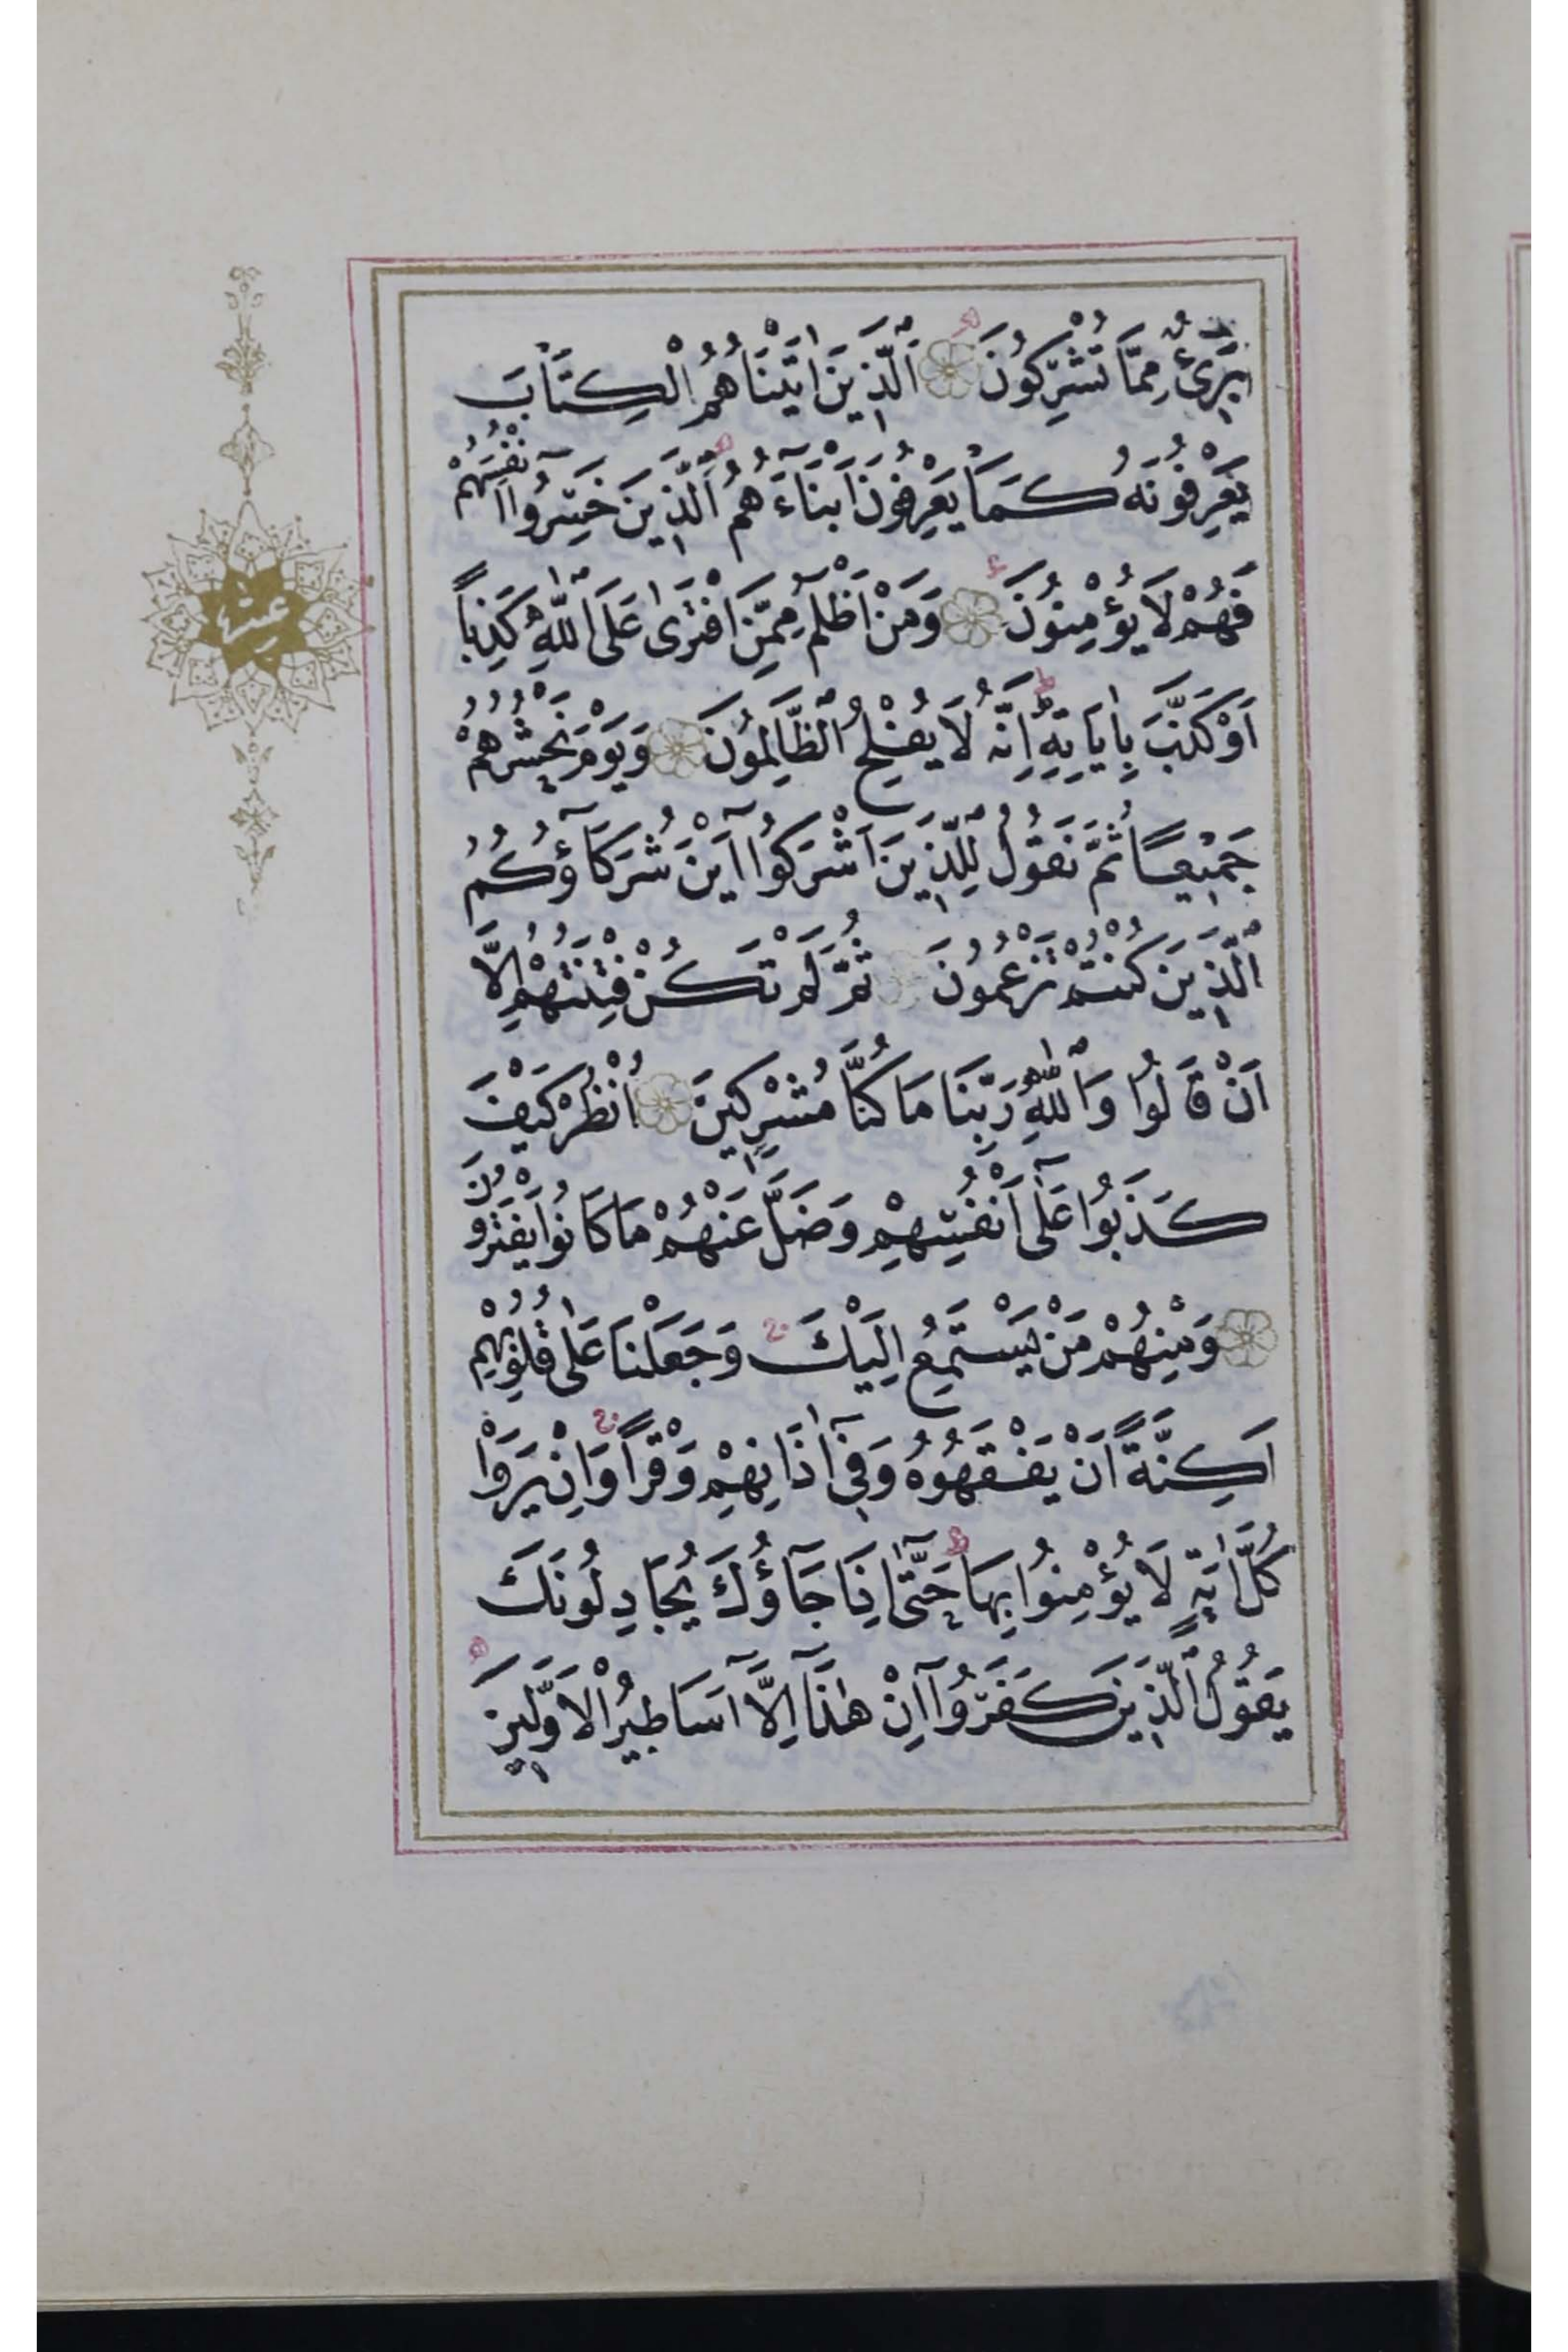 بَرِيءٌ مِمَّا تُشْرِكُونَ اَلَّذِينَ اٰتَيْنَاهُمُ الْكِتَابَ
يَعْرِفُونَهُ كَمَا يَعْرِفُونَ اَبْنَاءَهُمُ اَلَّذِينَ خَسِرُوا اَنْفُسَهُمْ
فَهُمْ لَا يُؤْمِنُونَ وَمَنْ اَظْلَمُ مِمَّنِ افْتَرٰى عَلَى اللّٰهِ كَذِبًا
اَوْ كَذَّبَ بِاٰيَاتِهِ اِنَّهُ لَا يُفْلِحُ الظَّالِمُونَ وَيَوْمَ نَحْشُرُهُمْ
جَمِيعًا ثُمَّ نَقُولُ لِلَّذِينَ اَشْرَكُوا اَيْنَ شُرَكَاؤُكُمُ
الَّذِينَ كُنْتُمْ تَزْعُمُونَ ثُمَّ لَمْ تَكُنْ فِتْنَتُهُمْ اِلَّا
اَنْ قَالُوا وَاللّٰهِ رَبِّنَا مَا كُنَّا مُشْرِكِينَ اُنْظُرْ كَيْفَ
كَذَبُوا عَلٰٓى اَنْفُسِهِمْ وَضَلَّ عَنْهُمْ مَا كَانُوا يَفْتَرُونَ
وَمِنْهُمْ مَنْ يَسْتَمِعُ اِلَيْكَ وَجَعَلْنَا عَلٰى قُلُوبِهِمْ
اَكِنَّةً اَنْ يَفْقَهُوهُ وَفِٓي اٰذَانِهِمْ وَقْرًا وَاِنْ يَرَوْا
كُلَّ اٰيَةٍ لَا يُؤْمِنُوا بِهَا حَتّٰٓى اِذَا جَآؤُكَ يُجَادِلُونَكَ
يَقُولُ الَّذِينَ كَفَرُوٓا اِنْ هٰذَٓا اِلَّٓا اَسَاطِيرُ الْاَوَّلِينَ
عشر